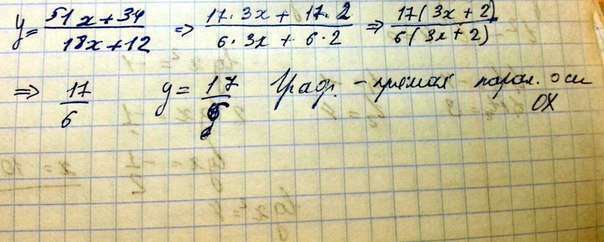 y = (51x + 34)/(18x + 12) => (17·3x + 17·2)/(6·3x + 6·2) => 17(3x + 2)/6(3x + 2)
=> 17/6 y = 17/6 Граф. - прямая парал. оси
OX